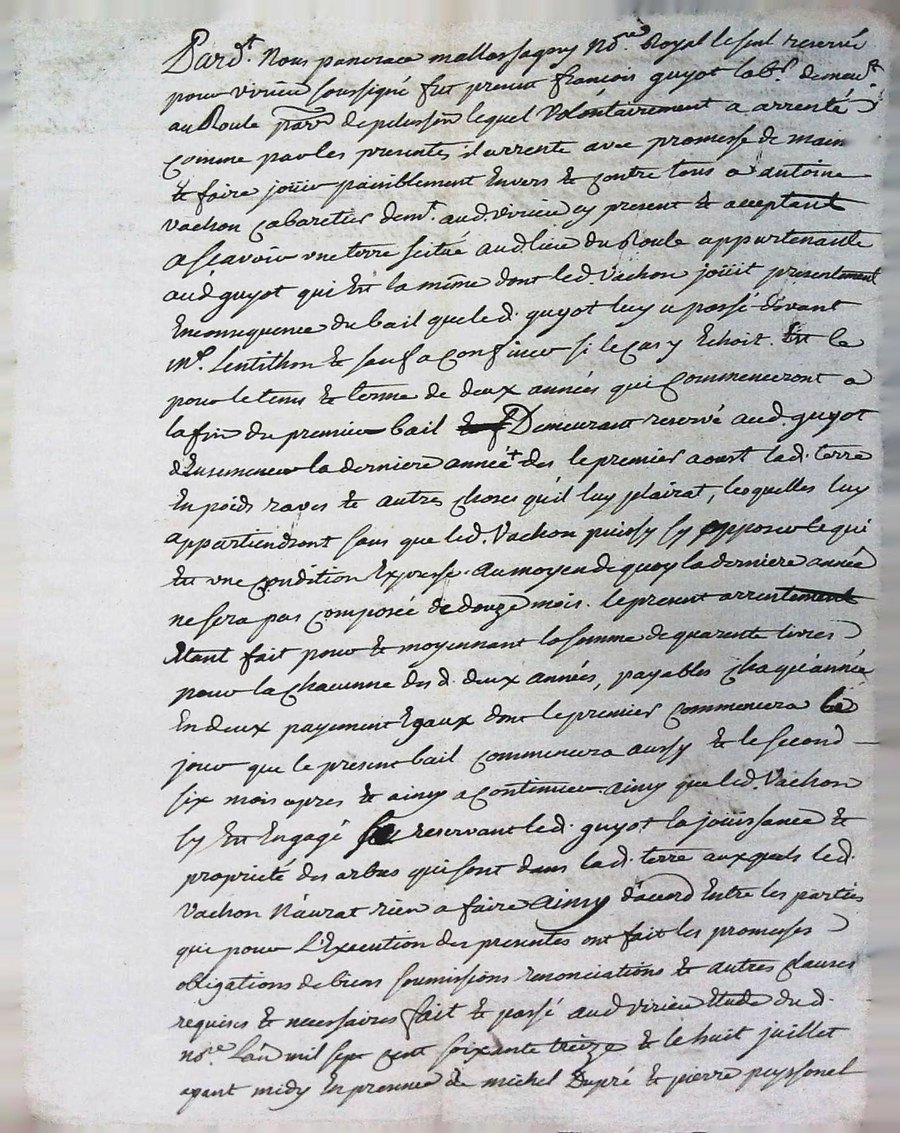 Pard.t Nous pancrace mallassagny No.re Royal le seul reservé
pour virieu soussigné fut present françois guyot lab.r demeu.t
au Roule parr.e de pelussin lequel volontairement a arrenté
comme par les presentes il arrente avec promesse de main
& faire joüir paisiblement Envers & contre tous a antoine
vachon cabaretier dem.t aud. virieu cy present & acceptant
a scavoir une terre scitué aud. lieu du Roule appartenante
aud guyot qui Est la même dont led. Vachon joüit presentement
En consequence du bail que led. guyot luy a passé devant
m.e Lentilhon & sauf a confiner si le cas y Echoit. Et ce
pour le tems & terme de deux années qui commenceront a
la fin du premier bail Demeurant reservé aud. guyot
d'Ensemencer la derniere année + des le premier aoust lad. terre
En poids raves & autres choses qu'il luy plairat, lesquelles luy
appartiendront sans que led. Vachon puissy sy opposer ce qui
Est une condition Expresse. au moyen de quoy la derniere année
ne sera pas composée de douze mois. le present arrentement
Etant fait pour & moyennant la somme de quarente livres
pour la chacunne des d. deux années, payables chaqu'année
En deux payement Egaux dont le premier commencera le
jour que le present bail commencera aussy & le second
six mois apres & ainsy a continuer ainsy que led. Vachon
sy Est Engagé se reservant led. guyot la joüissance &
propriété des arbres qui sont dans lad. terre auxquels led.
Vachon n'aurat rien a faire ainsy d'acord Entre les parties
que pour L'Execution des presentes ont fait les promesses
obligations de biens soumissions renonciations & autres clauses
requises & necessaires fait & passé aud virieu Etude du d.
no.re L'an mil sept cent soixante treize & le huit juillet
avant midy En presence de michel Dupré & pierre peyssonel